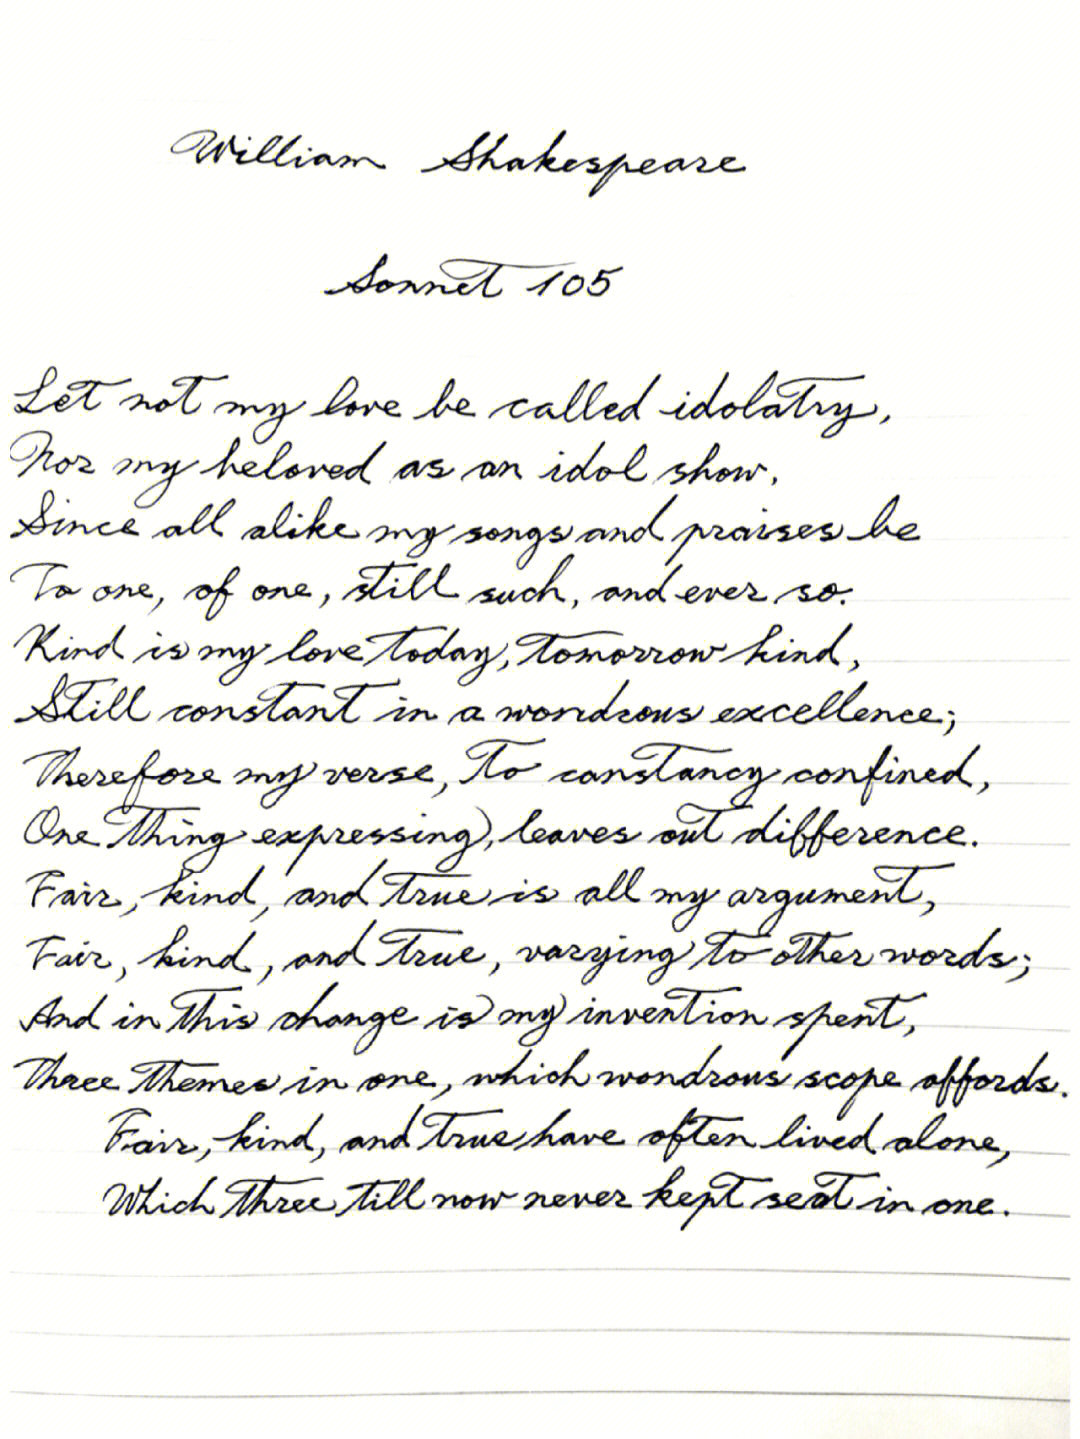 William Shakespeare
Sonnet 105
Let not my love be called idolatry,
Nor my beloved as an idol show,
Since all alike my songs and praises be
To one, of one, still such, and ever so.
Kind is my love today, tomorrow kind,
Still constant in a wondrous excellence;
Therefore my verse, to constancy confined,
One thing expressing, leaves out difference.
Fair, kind, and true is all my argument,
Fair, kind, and true, varying to other words;
And in this change is my invention spent,
Three themes in one, which wondrous scope affords.
Fair, kind, and true have often lived alone,
Which three till now never kept seat in one.